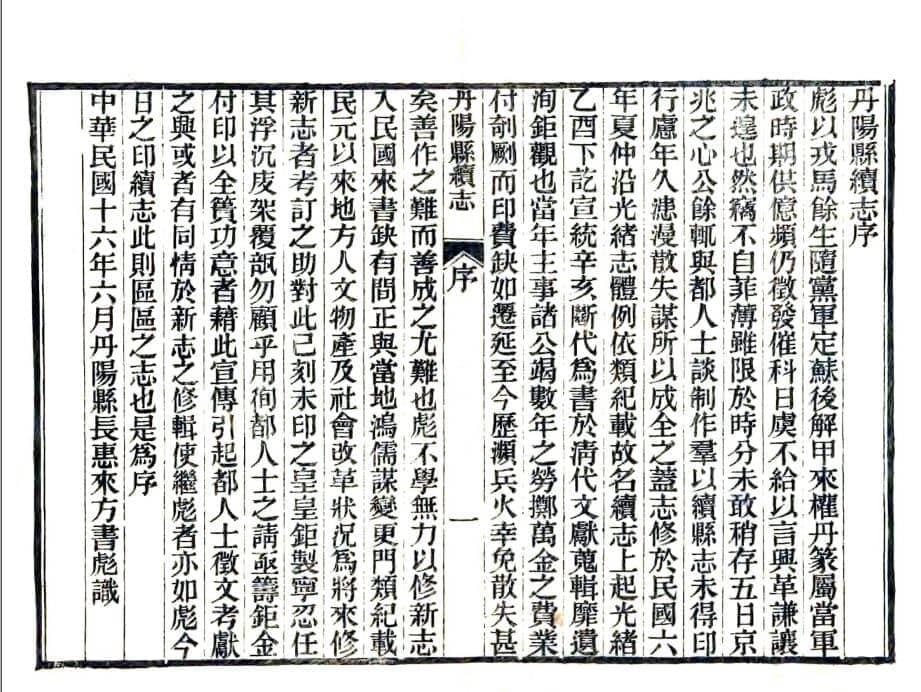 丹陽縣續志序
彪以戎馬餘生隨黨軍定蘇後解甲來權丹篆屬當軍
政時期供億頻仍徵發催科日虞不給以言興革謙讓
未遑也然竊不自菲薄雖限於時分未敢稍存五日京
兆之心公餘輒與都人士談制作羣以續縣志未得印
行慮年久漶漫散失謀所以成全之蓋志修於民國六
年夏仲沿光緒志體例依類紀載故名續志上起光緒
乙酉下訖宣統辛亥斷代爲書於淸代文獻蒐輯靡遺
洵鉅觀也當年主事諸公竭數年之勞擲萬金之費業
付剞劂而印費缺如遷延至今歷瀕兵火幸免散失甚
丹陽縣續志 序 一
矣善作之難而善成之尤難也彪不學無力以修新志
入民國來書缺有間正與當地鴻儒謀變更門類紀載
民元以來地方人文物產及社會改革狀況爲將來修
新志者考訂之助對此已刻未印之皇皇鉅製寧忍任
其浮沉庋架覆瓿勿顧乎用徇都人士之請亟籌鉅金
付印以全簣功意者藉此宣傳引起都人士徵文考獻
之興或者有同情於新志之修輯使繼彪者亦如彪今
日之印續志此則區區之志也是爲序
中華民國十六年六月丹陽縣長惠來方書彪識